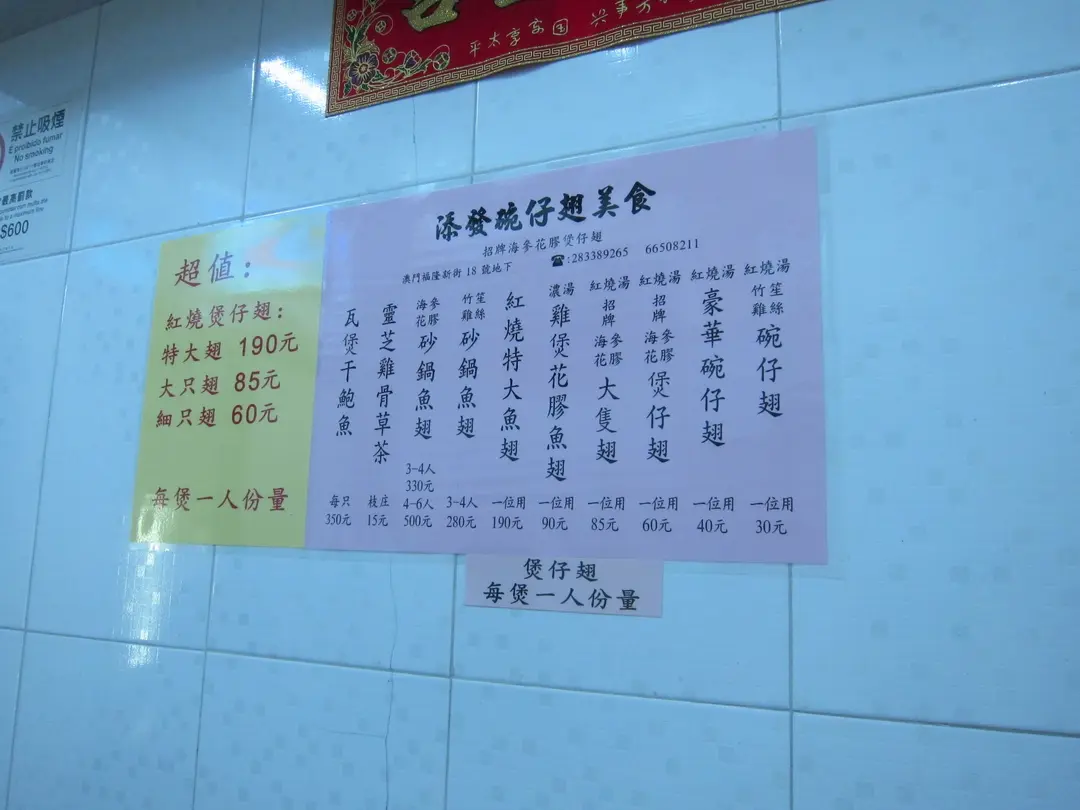 平太家國 興事万
禁止吸煙
É proibido fumar
No smoking
最高罰款
$600
超值:
紅燒煲仔翅:
特大翅 190元
大只翅 85元
細只翅 60元
每煲一人份量
添發碗仔翅美食
招牌海參花膠煲仔翅
澳門福隆新街 18 號地下 ☎:283389265 66508211
紅燒湯 竹笙雞絲 碗仔翅 一位用 30元
紅燒湯 豪華碗仔翅 一位用 40元
紅燒湯 招牌 海參花膠 煲仔翅 一位用 60元
紅燒湯 招牌 海參花膠 大隻翅 一位用 85元
濃湯 雞煲花膠魚翅 一位用 90元
紅燒特大魚翅 一位用 190元
竹笙雞絲 砂鍋魚翅 3-4人 280元
海參花膠 砂鍋魚翅 3-4人 330元 4-6人 500元
靈芝雞骨草茶 枝庄 15元
瓦煲干鮑魚 每只 350元
煲仔翅
每煲一人份量